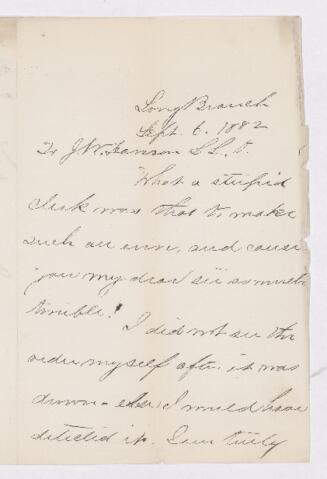 Long Branch
Sept. 6. 1882
To J. W. Hanson L L. D.
What a stupid
clerk was that to make
such an error, and cause
you my dear sir so much
trouble!
I did not see the
order myself after it was
drawn - else I would have
detected it. I am truly